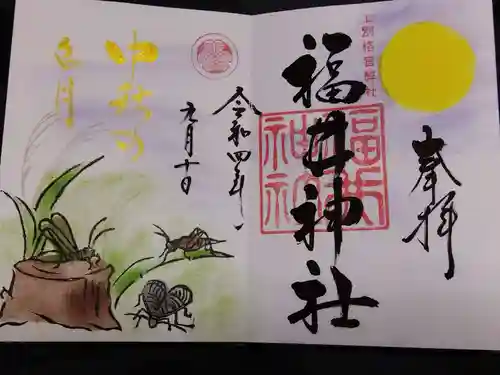 奉拝
旧別格官幣社
福井神社
福井神社
令和四年
九月十日
中秋の
名月